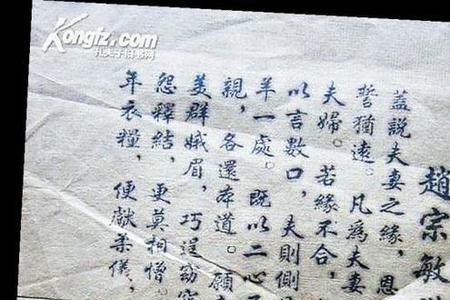 Kongfz.com
孔夫子旧书网
趙宗敏
蓋說夫妻之緣，恩
誓猶遠。凡為夫妻
夫婦。若緣不合，
以言數口，夫則側
羊一處。既以二心
親，各還本道。願
美群娥眉，巧逞窈
怨釋結，更莫相憎。
年衣糧，便獻柔儀，